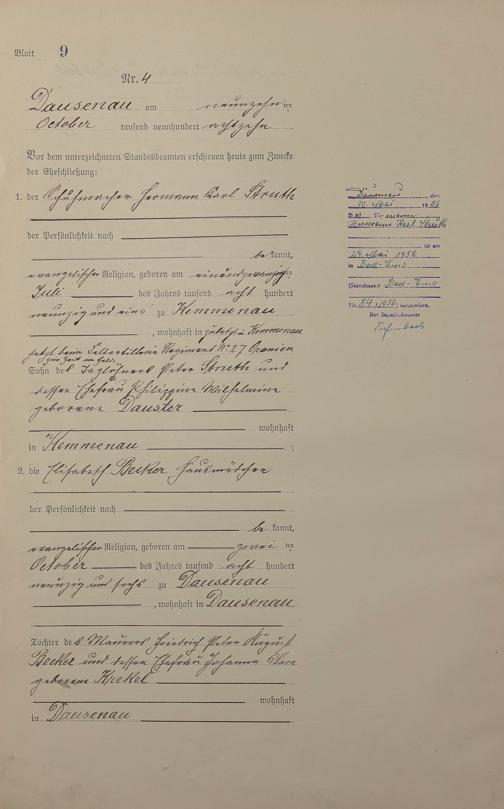 Blatt 9
Nr. 4
Dausenau am neunzehnten
October tausend neunhundert achtzehn
Vor dem unterzeichneten Standesbeamten erschienen heute zum Zwecke
der Eheschließung:
1. der Schuhmacher Hermann Karl Struth
der Persönlichkeit nach
bekannt,
evangelischer Religion, geboren am einundzwanzigsten
Juli des Jahres tausend acht hundert
neunzig und eins zu Kemmenau
, wohnhaft in zuletzt in Kemmenau
jetzt beim Feldartillerie Regiment No 27 Oranien
zur Zeit im Felde
Sohn des Taglöhners Peter Struth und
dessen Ehefrau Philippine Wilhelmine
geborene Dauster
wohnhaft
in Kemmenau ;
2. die Elisabeth Becker Hausmädchen
der Persönlichkeit nach
bekannt,
evangelischer Religion, geboren am zwei ten
October des Jahres tausend acht hundert
neunzig und sechs zu Dausenau
, wohnhaft in Dausenau
Tochter des Maurers Friedrich Peter August
Becker und dessen Ehefrau Johanna
geborene Krekel
wohnhaft
in Dausenau
Dausenau, den
Mai 1956
Hermann Karl Struth
ist am
29. Mai 1956
in Bad-Ems
(Standesamt Bad-Ems
Nr. 84/1956) verstorben.
Der Standesbeamte